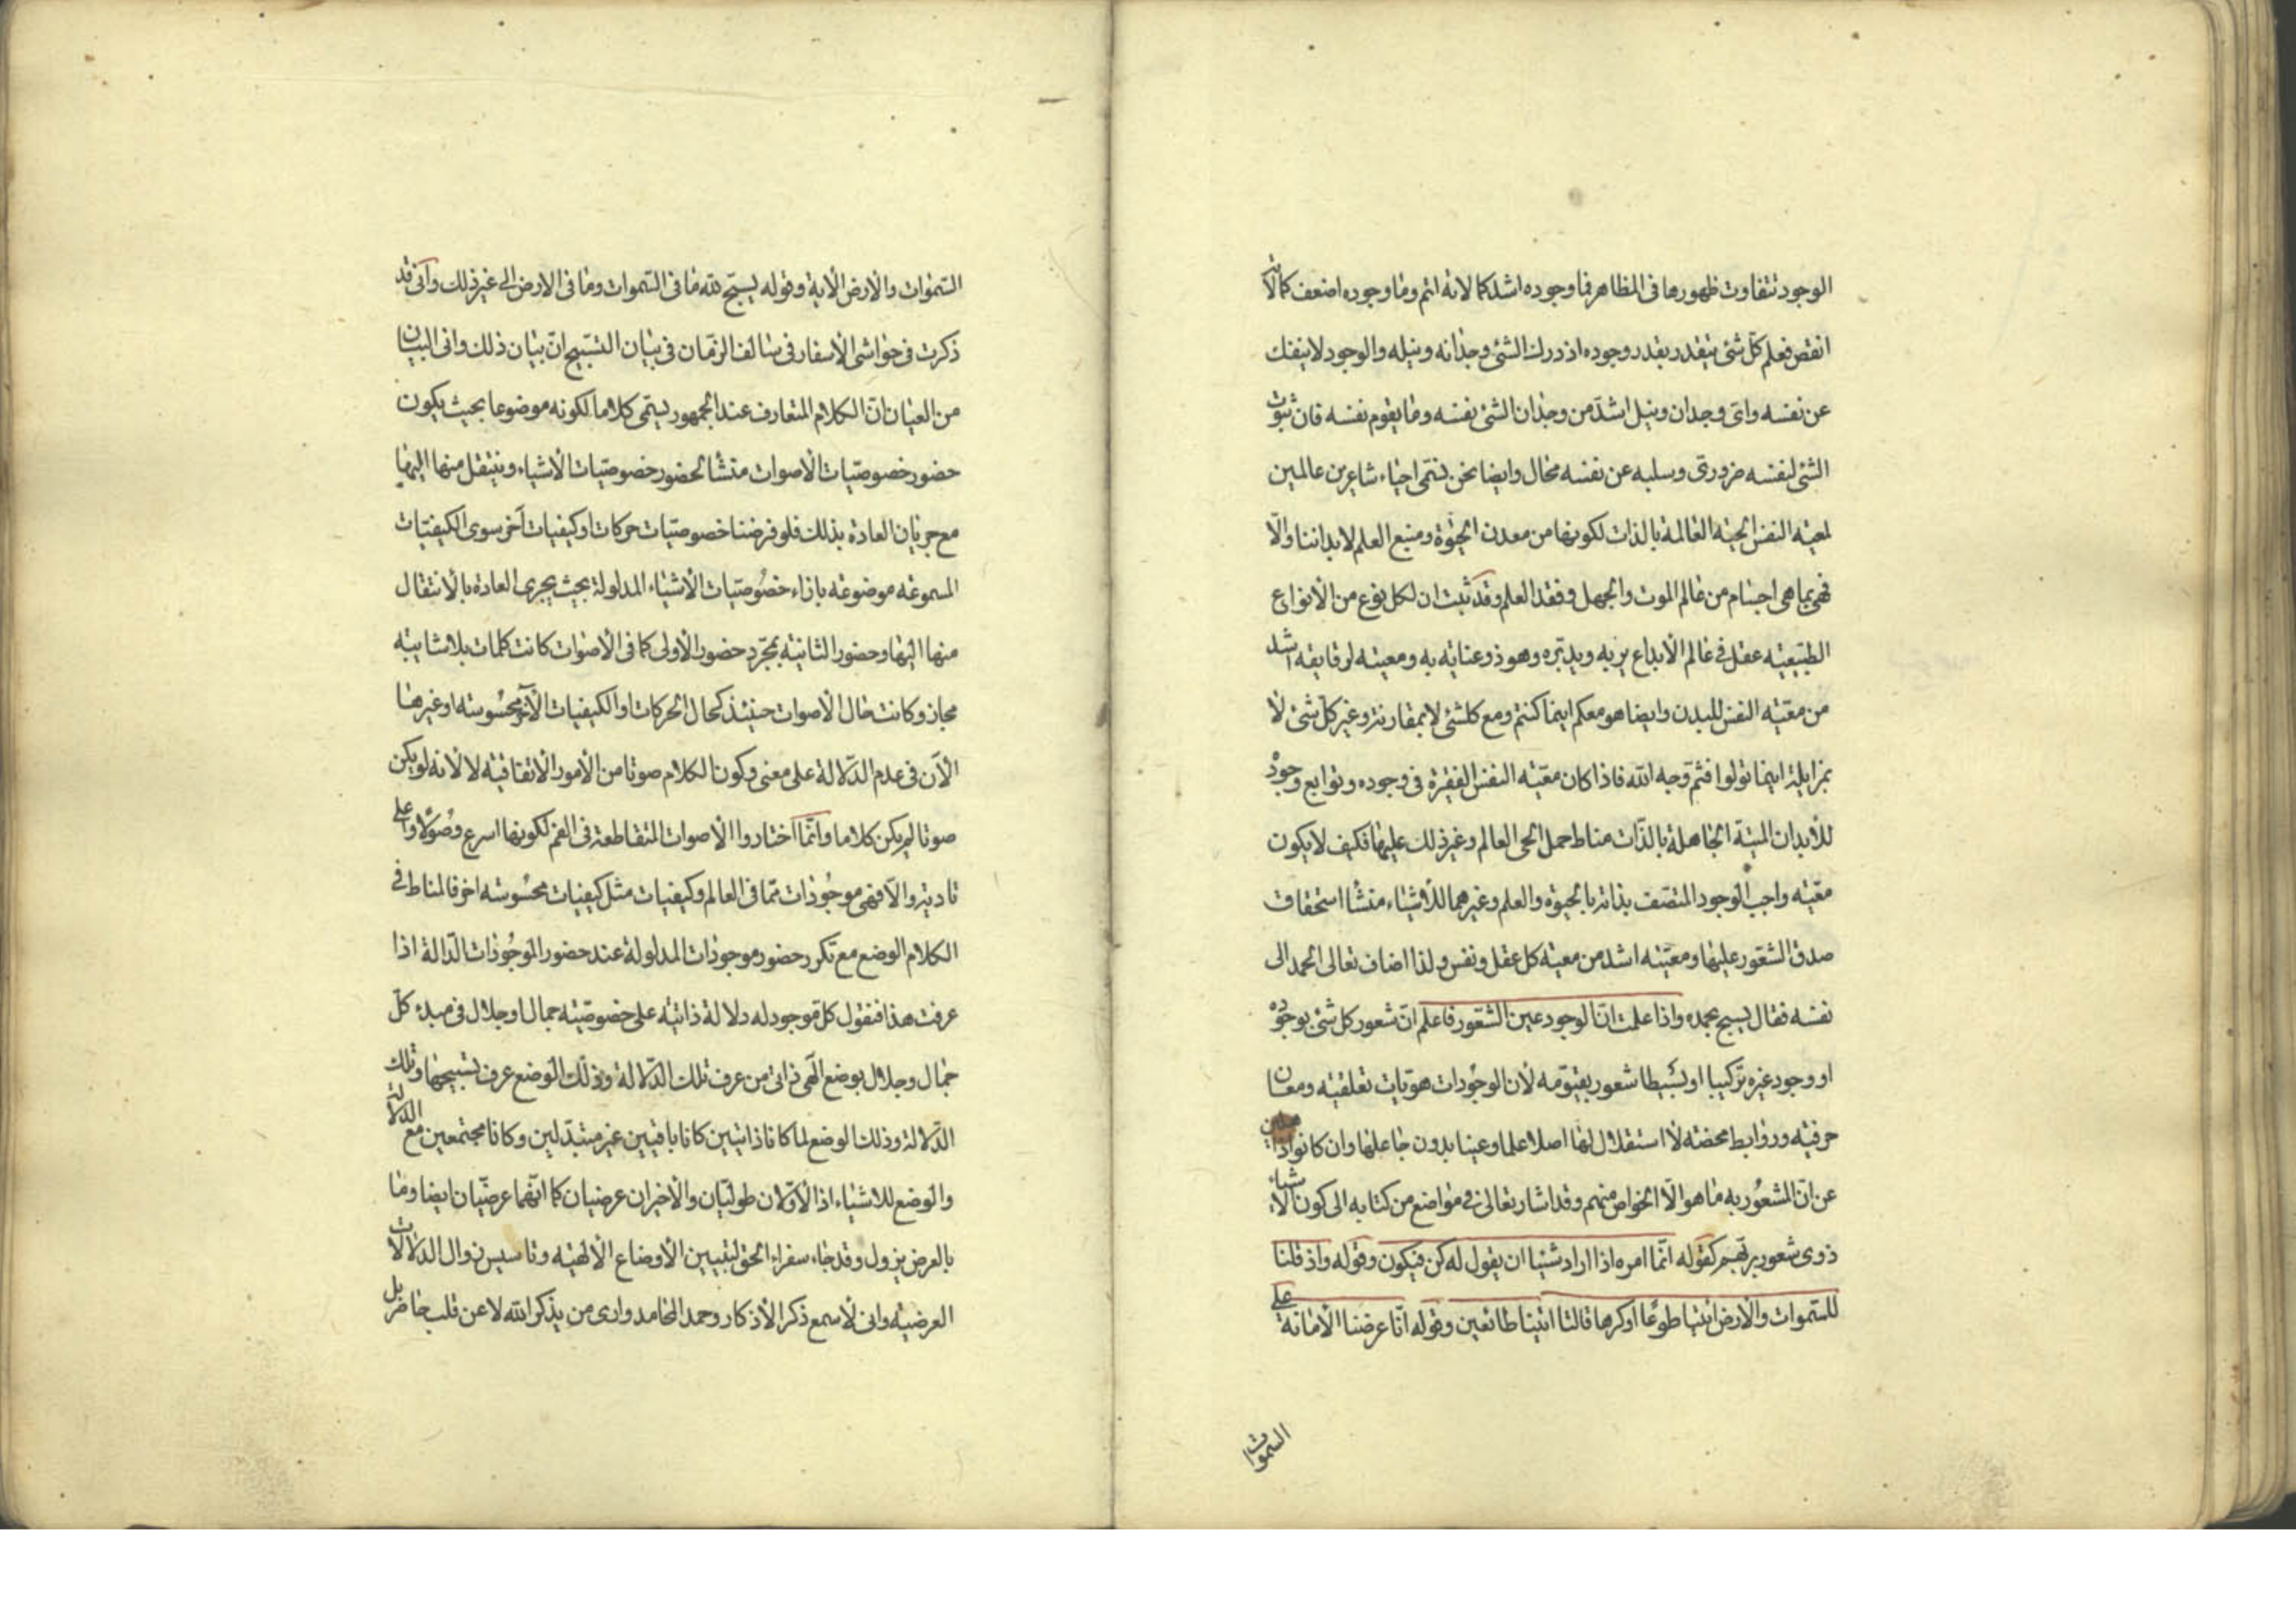 الوجود تتفاوت ظهورها فى المظاهر فما وجوده اشد كمالاته اتم وما وجوده اضعف كمالاته
انقص فعلم كل شئ يتقدر بقدر وجوده اذ درك الشئ وجدانه ونيله والوجود لا ينفك
عن نفسه واى وجدان ونيل اشد من وجدان الشئ نفسه وما يقوم نفسه فان ثبوت
الشئ لنفسه ضرورى وسلبه عن نفسه محال وايضا نحن نسمى احياء شاعرين عالمين
لمعية النفس الحية العالمة بالذات لكونها من معدن الحيوة ومنبع العلم لابداننا والّا
فهى بما هى اجسام من عالم الموت والجهل وفقد العلم وقد ثبت ان لكل نوع من الانواع
الطبيعية عقل فى عالم الابداع يربه ويدبره وهو ذو عناية به ومعيته لرقايقه اشد
من معيّة النفس للبدن وايضا هو معكم اينما كنتم ومع كلشئ لا بمقارنة وغير كل شئ لا
بمزايلة اينما تولوا فثم وجه الله فاذا كان معيّة النفس الفقيرة فى وجوده وتوابع وجوده
للأبدان الميتة الجاهلة بالذات مناط حمل الحى العالم وغير ذلك عليها فكيف لا يكون
معيّة واجب الوجود المتصف بذاته بالحيوة والعلم وغيرهما للأشياء منشأ استحقاق
صدق الشعور عليها ومعيّته اشد من معية كل عقل ونفس ولذا اضاف تعالى الحمد الى
نفسه فقال يسبح بحمده واذا علمت ان الوجود عين الشعور فاعلم انّ شعور كل شئ بوجوده
او وجود غيره تركيبا او بسيطا شعور بقيّومه لأن الوجودات هويات تعلقية ومعان
حرفية وروابط محضة لا استقلال لها اصلا علما وعينا بدون جاعلها وان كانوا ذاهلين
عن ان المشعور به ما هو الّا الخواص منهم وقد اشار تعالى فى مواضع من كتابه الى كون الاشياء
ذوى شعور بربهم كقوله انّما امره اذا اراد شيئا ان يقول له كن فيكون وقوله واذ قلنا
للسموات والارض ائتيا طوعًا او كرها قالتا اتينا طائعين وقوله انّا عرضنا الأمانة على
السموات
السّموات والأرض الأية وقوله يسبّح لله ما فى السّموات وما فى الارض الى غير ذلك وانى قد
ذكرت فى حواشى الأسفار فى سالف الزمان فى بيان التسبيح انّ بيان ذلك وانى البيان
من العيان ان الكلام المتعارف عند الجمهور يسمّى كلاما لكونه موضوعا بحيث يكون
حضور خصوصيّات الأصوات منشأ لحضور خصوصيّات الأشياء وينتقل منها اليها
مع جريان العادة بذلك فلو فرضنا خصوصيّات حركات او كيفيات أخر سوى الكيفيّات
المسموعه موضوعه بازاء خصوصيّات الأشياء المدلولة بحيث يجرى العادة بالانتقال
منها اليها وحضور الثانية بمجرّد حضور الأولى كما فى الأصوات كانت كلمات بلا شايبة
مجاز وكانت حال الأصوات حينئذ كحال الحركات والكيفيات الأخر محسوسة او غيرها
الآن فى عدم الدّلالة على معنى وكون الكلام صوتا من الأمور الأتفاقية لا لانه لو يكن
صوتا لم يكن كلاما وانّما اختاروا الأصوات المتقاطعة فى الفم لكونها اسرع وصُولًا وأعلى
تادية والّا فهى موجودات ممّا فى العالم وكيفيات مثل كيفيات محسُوسة اخر فالمناط فى
الكلام الوضع مع تكرر حضور موجودات المدلولة عند حضور الموجُودات الدّالة اذا
عرفت هذا فنقول كلّ موجود له دلالة ذاتية على خصوصيّة جمال او جلال فى مبدء كلّ
جمال وجلال بوضع الهى ذاتى من عرف تلك الدّلالة وذلك الوضع عرف تسبيحها وتلك
الدّلالة وذلك الوضع لما كانا ذاتيين كانا باقيين غير متبدّلين وكانا مجتمعين مع الدلالة
والوضع للاشياء اذ الأوّلان طوليّان والأخيران عرضيان كما انّهما عرضيّان ايضا وما
بالعرض يزول وقد جاء سفراء الحق لتبيين الأوضاع الألهية وتاسيس زوال الدلالات
العرضية وانى لأسمع ذكر الأذكار وحمد المحامد وارى من يذكر الله لا عن قلب حاضر بل